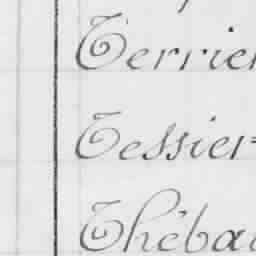 Terrier
Tessier
Thébau